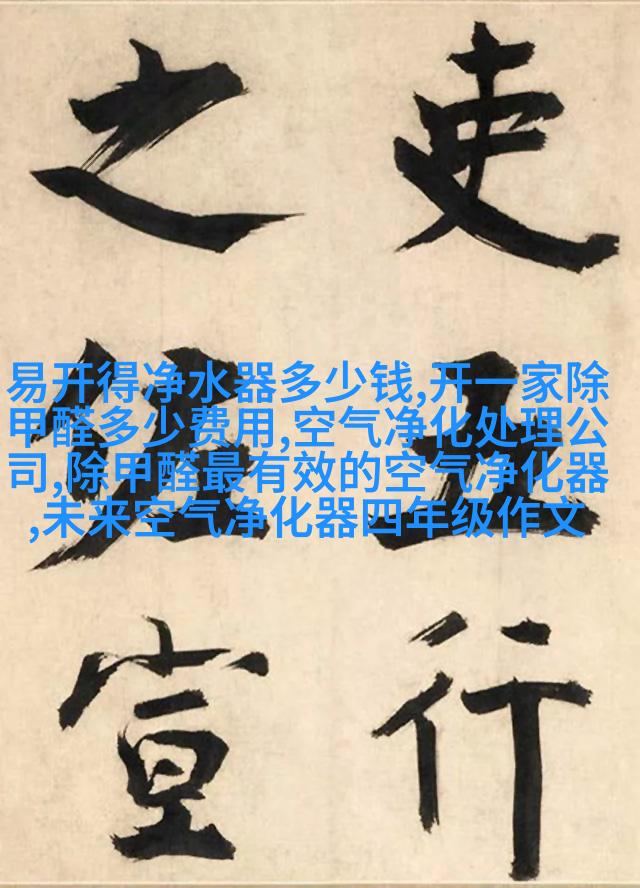 易开得净水器多少钱,开一家除
甲醛多少费用,空气净化处理公
司,除甲醛最有效的空气净化器
,未来空气净化器四年级作文
吏五行
之宣